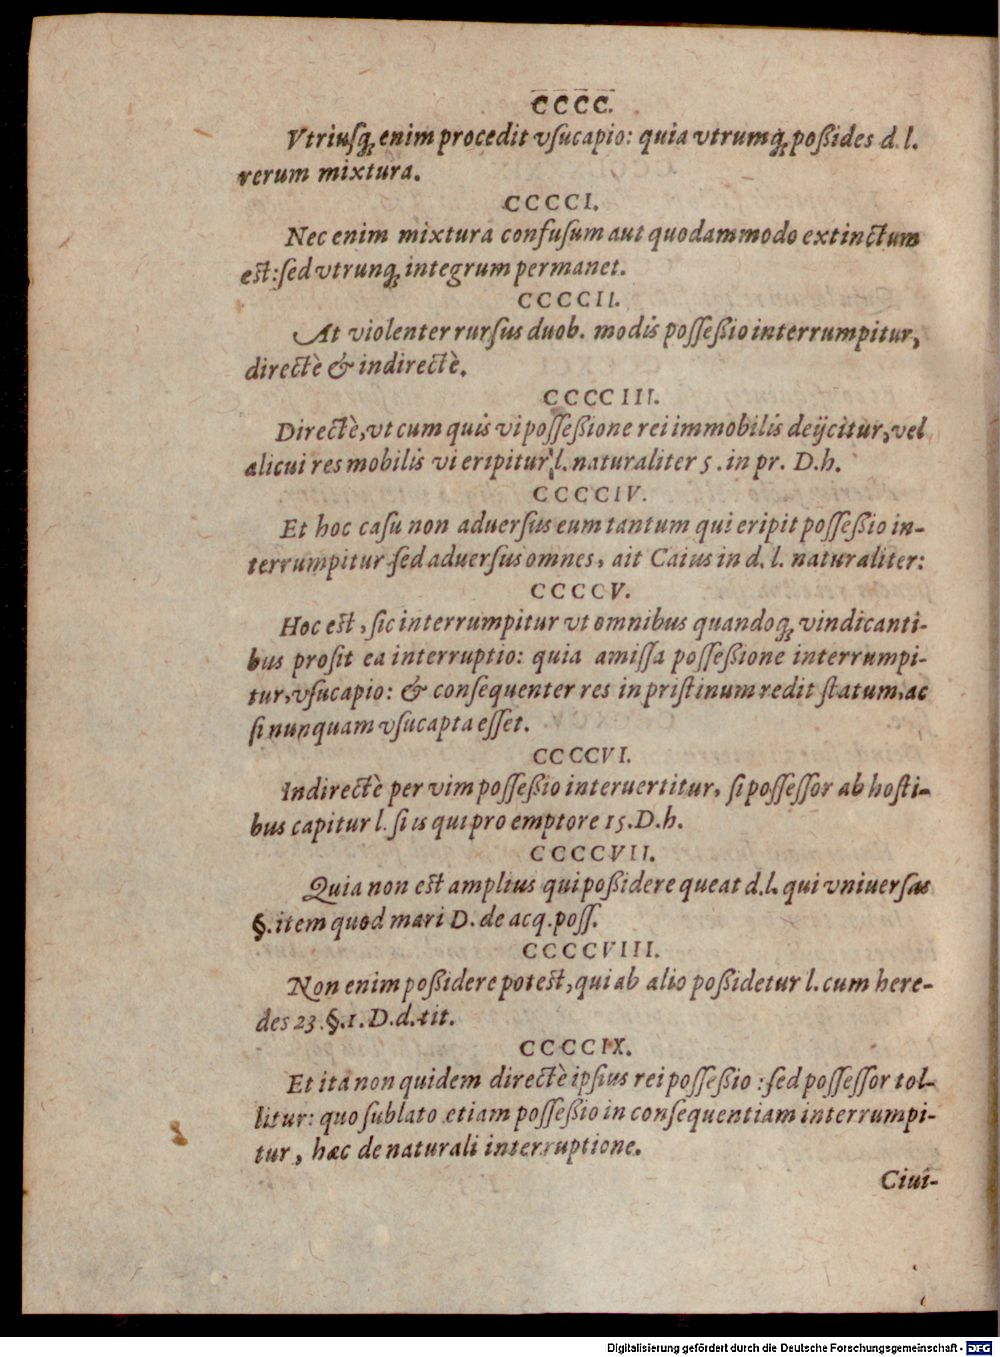 CCCC.
Vtriusq́; enim procedit vſucapio: quia vtrumq́; poßides d. l.
rerum mixtura.
CCCCI.
Nec enim mixtura confuſum aut quodammodo extinctum
est: ſed vtrunq́; integrum permanet.
CCCCII.
At violenter rurſus duob. modis poſſeßio interrumpitur,
directè & indirectè.
CCCCIII.
Directè, vt cum quis vi poſſeßione rei immobilis deijcitur, vel
alicui res mobilis vi eripitur l. naturaliter 5. in pr. D. h.
CCCCIV.
Et hoc caſu non aduerſus eum tantum qui eripit poſſeßio in-
terrumpitur ſed aduerſus omnes, ait Caius in d. l. naturaliter:
CCCCV.
Hoc est, ſic interrumpitur vt omnibus quandoq́; vindicanti-
bus proſit ea interruptio: quia amiſſa poſſeßione interrumpi-
tur, vſucapio: & conſequenter res in priſtinum redit ſtatum, ac
ſi nunquam vſucapta eſſet.
CCCCVI.
Indirectè per vim poſſeßio interuertitur, ſi poſſeſſor ab hoſti-
bus capitur l. ſi is qui pro emptore 15. D. h.
CCCCVII.
Quia non est amplius qui poßidere queat d. l. qui vniuerſas
§. item quod mari D. de acq. poſſ.
CCCCVIII.
Non enim poßidere potest, qui ab alio poßidetur l. cum here-
des 23. §. 1. D. d. tit.
CCCCIX.
Et ita non quidem directè ipſius rei poſſeßio: ſed poſſeſſor tol-
litur: quo ſublato etiam poſſeßio in conſequentiam interrumpi-
tur, hæc de naturali interruptione.
Ciui-
Digitalisierung gefördert durch die Deutsche Forschungsgemeinschaft - DFG